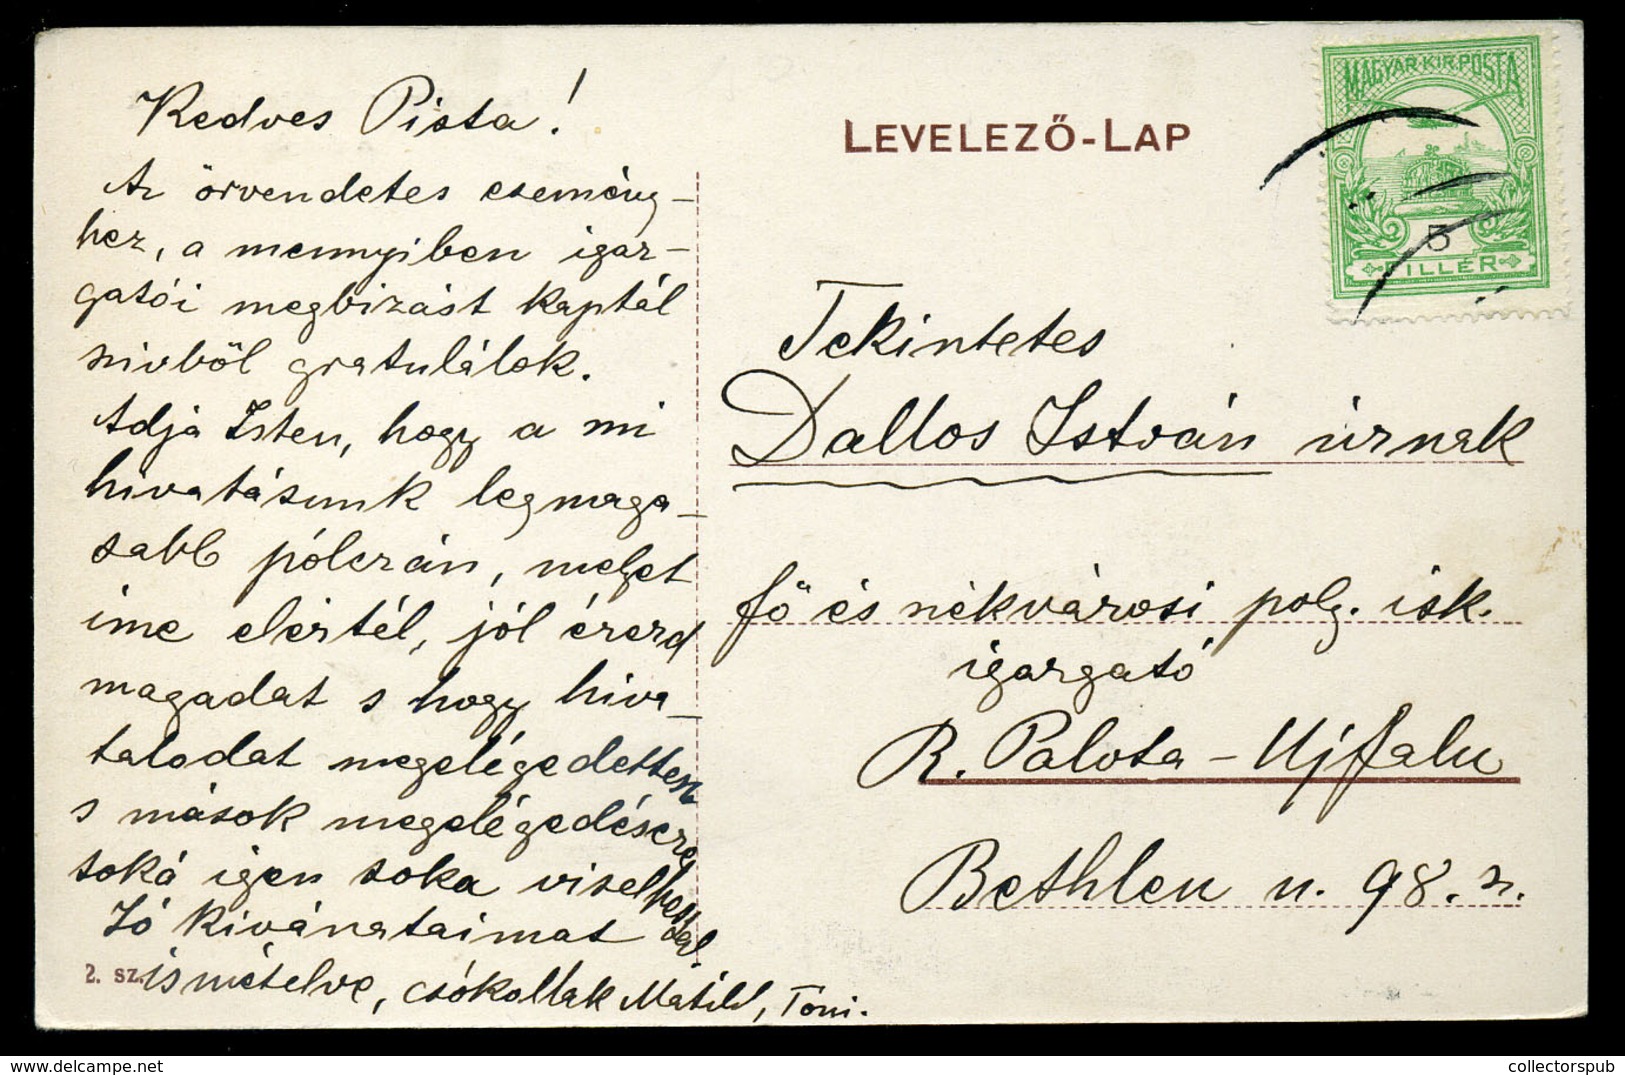 Kedves Pista!
Az örvendetes esemény-
hez, a mennyiben igaz-
gatói megbizást kaptál
szivből gratulálok.
Adja Isten, hogy a mi
hivatásunk legmaga-
sabb pólczán, melyet
ime elértél, jól érezd
magadat s hogy hiva-
talodat megelégedetten
s mások megelégedésére
soká igen soka viselhessed.
Jó kivánataimat
ismételve, csókollak Matild, Toni.
2. sz.
LEVELEZŐ-LAP
MAGYAR KIR. POSTA
5
FILLÉR
Tekintetes
Dallos István úrnak
fő és székvárosi polg. isk.
igazgató
R. Palota-Ujfalu
Bethlen u. 98. sz.
collectorspub